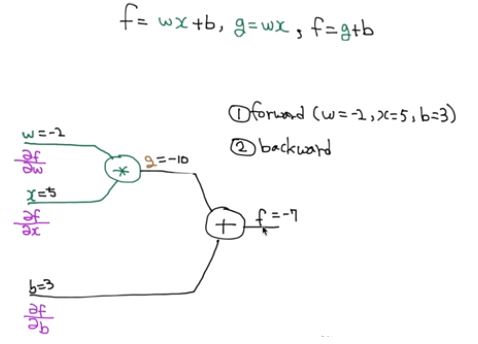 f = wx+b, g=wx, f=g+b
① forward (w=-2, x=5, b=3)
② backward
w=-2
∂f/∂w
*
g=-10
x=5
∂f/∂x
+
f=-7
b=3
∂f/∂b